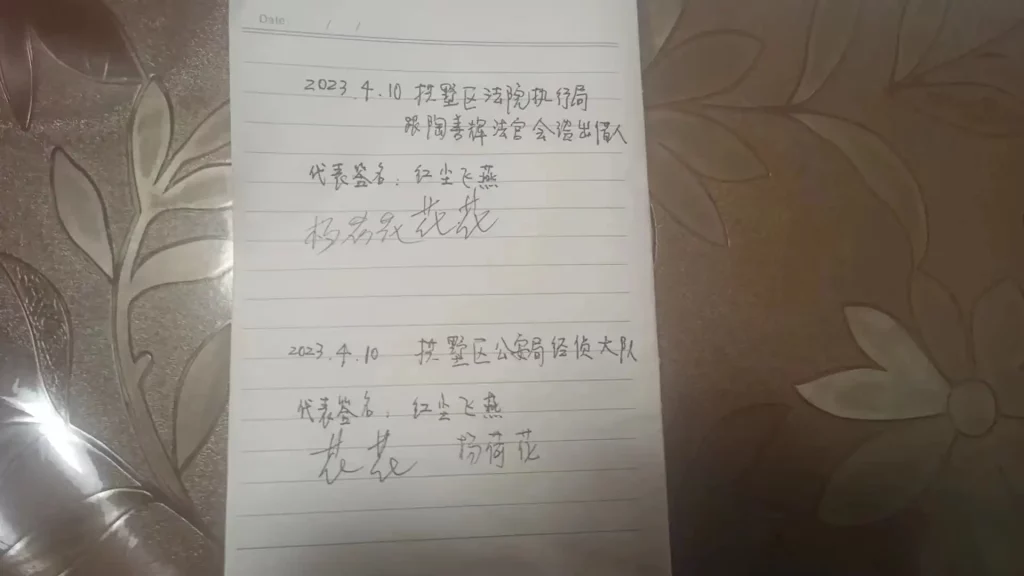 Date / /
2023.4.10 拱墅区法院执行局
跟陶善辉法官会谈出借人
代表签名：红尘飞燕
杨荷花 花花
2023.4.10 拱墅区公安局经侦大队
代表签名：红尘飞燕
花花 杨荷花